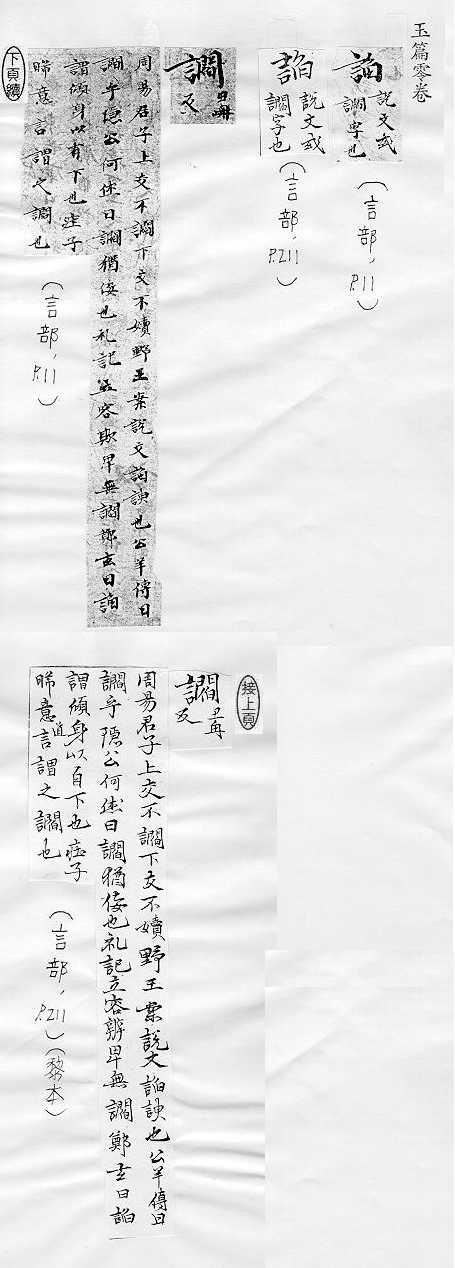 玉篇零卷
諂 說文或讇字也
(言部, P.11)
諂 說文或讇字也
(言部, P.211)
讇 丑冉反
周易君子上交不讇下交不嬻野王案說文諂諛也公羊傳曰
讇乎隱公何休曰讇猶佞也礼記立容辨卑無讇鄭玄曰諂
謂傾身以有下也莊子
睎意言謂之讇也
(言部, P.11)
下頁續
接上頁
讇 丑冉反
周易君子上交不讇下交不嬻野王案說文諂諛也公羊傳曰
讇乎隱公何休曰讇猶佞也礼記立容辨卑無讇鄭玄曰諂
謂傾身以自下也莊子
睎意道言謂之讇也
(言部, P.211)(黎本)